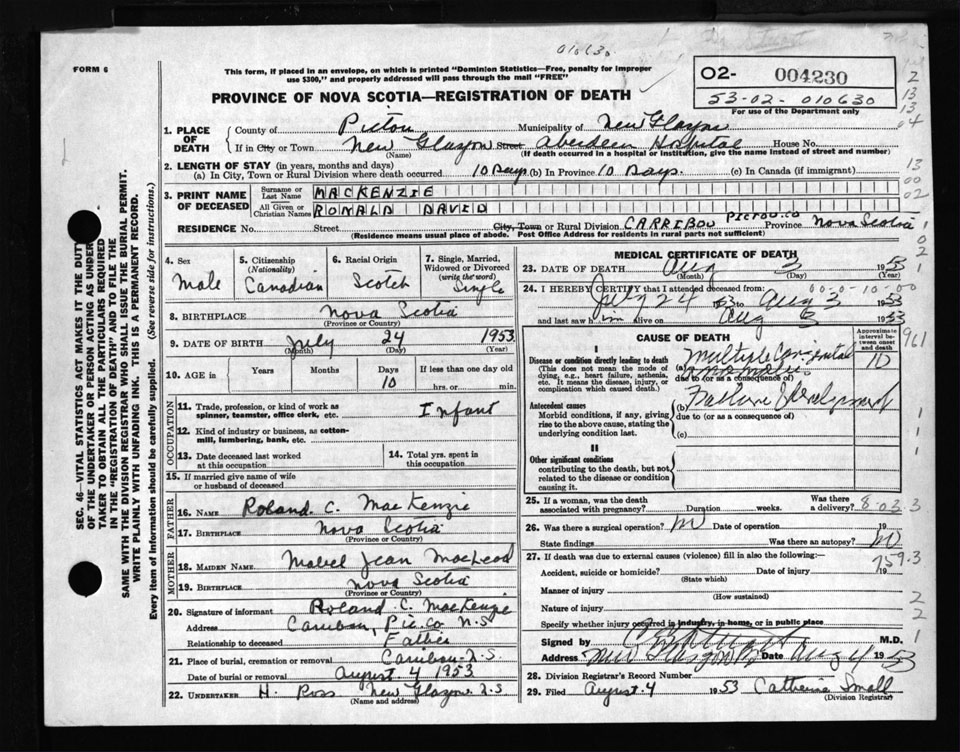 010630
FORM 6
This form, if placed in an envelope, on which is printed "Dominion Statistics—Free, penalty for improper use $300," and properly addressed will pass through the mail "FREE"
02- 004230
53-02-010630
For use of the Department only
PROVINCE OF NOVA SCOTIA—REGISTRATION OF DEATH
1. PLACE OF DEATH
County of Pictou Municipality of New Glasgow
If in City or Town New Glasgow Street Aberdeen Hospital House No.
(Name) (If death occurred in a hospital or institution, give the name instead of street and number)
2. LENGTH OF STAY (in years, months and days)
(a) In City, Town or Rural Division where death occurred 10 Days (b) In Province 10 Days. (c) In Canada (if immigrant)
3. PRINT NAME OF DECEASED
Surname or Last Name MACKENZIE
All Given or Christian Names RONALD DAVID
RESIDENCE No. Street City, Town or Rural Division CARRIBOU PICTOU.CO Province Nova Scotia
(Residence means usual place of abode. Post Office Address for residents in rural parts not sufficient)
4. Sex Male
5. Citizenship (Nationality) Canadian
6. Racial Origin Scotch
7. Single, Married, Widowed or Divorced (write the word) Single
8. BIRTHPLACE Nova Scotia
(Province or Country)
9. DATE OF BIRTH July 24 1953
(Month) (Day) (Year)
10. AGE in Years Months Days 10 If less than one day old hrs. or min.
OCCUPATION
11. Trade, profession, or kind of work as spinner, teamster, office clerk, etc. Infant
12. Kind of industry or business, as cotton-mill, lumbering, bank, etc.
13. Date deceased last worked at this occupation
14. Total yrs. spent in this occupation
15. If married give name of wife or husband of deceased
FATHER
16. NAME Roland C. MacKenzie
17. BIRTHPLACE Nova Scotia
(Province or Country)
MOTHER
18. MAIDEN NAME Mabel Jean MacLeod
19. BIRTHPLACE Nova Scotia
(Province or Country)
20. Signature of informant Roland C. MacKenzie
Address Caribou, Pic.Co N.S
Relationship to deceased Father
21. Place of burial, cremation or removal Caribou N.S.
Date of burial or removal August 4 1953
22. UNDERTAKER H. Ross New Glasgow N.S
(Name and address)
MEDICAL CERTIFICATE OF DEATH
23. DATE OF DEATH Aug 3 1953
(Month) (Day) (Year)
24. I HEREBY CERTIFY that I attended deceased from: 00-0-10-00
July 24 53 to Aug 3 1953
and last saw him alive on Aug 3 1953
CAUSE OF DEATH
Approximate interval between onset and death
I
Disease or condition directly leading to death
(This does not mean the mode of dying, e.g., heart failure, asthenia, etc. It means the disease, injury, or complication which caused death.)
(a) Multiple Congenital 10
due to (or as a consequence of)
Antecedent causes
Morbid conditions, if any, giving rise to the above cause, stating the underlying condition last.
(b) Failure Development
due to (or as a consequence of)
(c)
II
Other significant conditions
contributing to the death, but not related to the disease or condition causing it.
25. If a woman, was the death associated with pregnancy? Duration weeks. Was there a delivery? 8-03 3
26. Was there a surgical operation? Date of operation 19
State findings Was there an autopsy?
27. If death was due to external causes (violence) fill in also the following:
Accident, suicide or homicide? Date of injury 19 759.3
(State which)
Manner of injury
(How sustained)
Nature of injury
Specify whether injury occurred in industry, in home, or in public place
Signed by M.D.
Address New Glasgow Date Aug 4 1953
28. Division Registrar's Record Number
29. Filed August 4 1953 Catherine Small
(Division Registrar)
SEC. 46—VITAL STATISTICS ACT MAKES IT THE DUTY
OF THE UNDERTAKER OR PERSON ACTING AS UNDER-
TAKER TO OBTAIN ALL THE PARTICULARS REQUIRED
IN THE "REGISTRATION OF DEATH" AND TO FILE THE
SAME WITH THE DIVISION REGISTRAR WHO SHALL ISSUE THE BURIAL PERMIT.
WRITE PLAINLY WITH UNFADING INK. THIS IS A PERMANENT RECORD.
Every item of information should be carefully supplied. (See reverse side for instructions.)